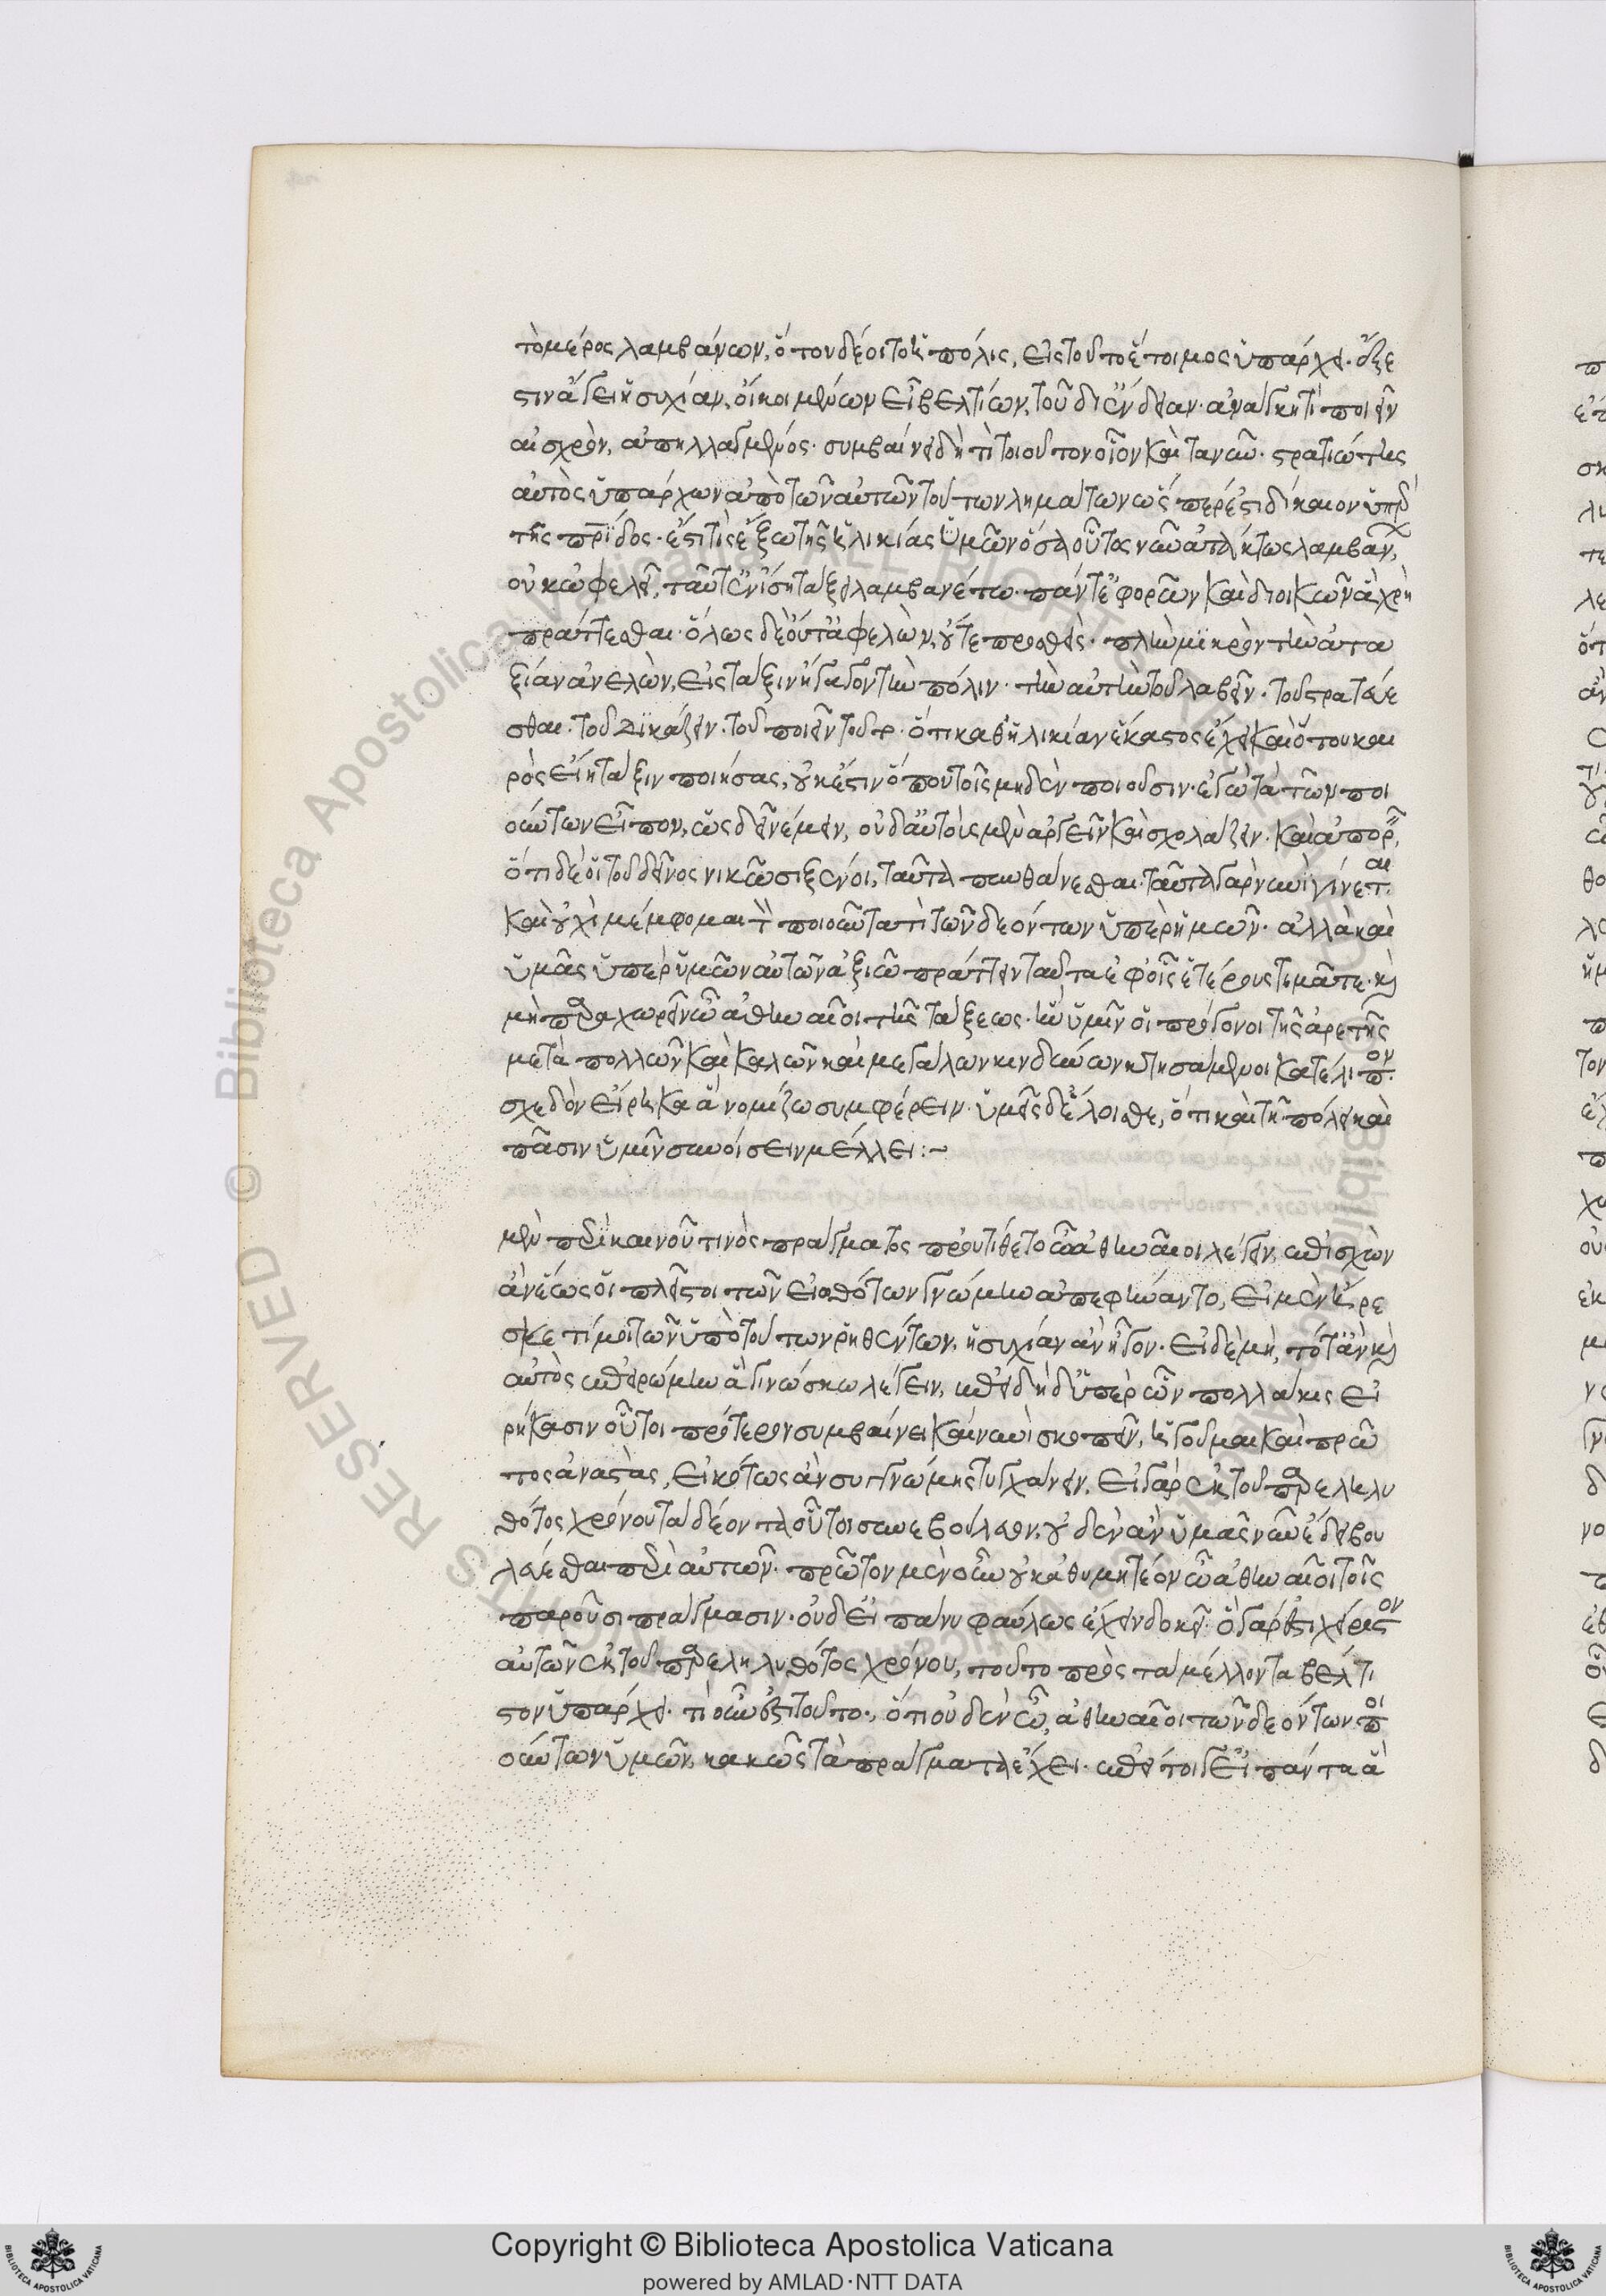 τὸ μέρος λαμβάνων, ὅτου δέοιτο ἡ πόλις, εἰς τοῦτο ἕτοιμος ὑπάρχει. ἔξε
στιν ἄγειν ἡσυχίαν, οἴκοι μένων εἶ βελτίων, τοῦ δι' ἔνδειαν ἀνάγκῃ τι ποιεῖν
αἰσχρὸν, ἀπηλλαγμένος. συμβαίνει δή τι τοιοῦτον οἷον καὶ τανῦν. στρατιώτης
αὐτὸς ὑπάρχων ἀπὸ τῶν αὐτῶν τούτων λημμάτων ὥσπερ ἐστὶ δίκαιον ὑπὲρ
τῆς πρίδος. ἔστι τις ἔξω τῆς ἡλικίας ὑμῶν ὅσα οὗτος νῦν ἀτάκτως λαμβάνων,
οὐκ ὠφελεῖ, ταῦτ' ἐν ἴσῃ τάξει λαμβανέτω πάντ' ἐφορῶν καὶ διοικῶν ἃ χρὴ
πράττεσθαι. ὅλως δὲ οὔτ' ἀφελὼν, οὔτε προσθεὶς. πλὴν μικρὸν τὴν ἀτα
ξίαν ἀνελὼν, εἰς τάξιν ἤγαγον τὴν πόλιν. τὴν αὐτὴν τοῦ λαβεῖν. τοῦ στρατεύε
σθαι. τοῦ δικάζειν. τοῦ ποιεῖν τοῦθ' ὅ τι καθ' ἡλικίαν ἕκαστος ἔχει καὶ ὅτου και
ρὸς εἴη τάξιν ποιήσας, οὐκ ἔστιν ὅπου τοῖς μηδὲν ποιοῦσιν. ἐγὼ τὰ τῶν ποι
ούντων εἶπον, ὡς δεῖ νέμειν, οὐδ' αὐτοὺς μὲν ἀργεῖν καὶ σχολάζειν. καὶ ἀπορεῖν,
ὅτι δὲ οἱ τοῦ δεῖνος νικῶσι ξένοι, ταῦτα πυνθάνεσθαι. ταῦτα γὰρ νυνὶ γίνεται.
καὶ οὐχὶ μέμφομαι τὸν ποιοῦντά τι τῶν δεόντων ὑπὲρ ἡμῶν. ἀλλὰ καὶ
ὑμᾶς ὑπὲρ ὑμῶν αὐτῶν ἀξιῶ πράττειν ταῦτα ἐφ' οἷς ἑτέρους τιμᾶτε. καὶ
μὴ παραχωρεῖν ὦ ἀθηναῖοι τῆς τάξεως. ἣν ὑμῖν οἱ πρόγονοι τῆς ἀρετῆς
μετὰ πολλῶν καὶ καλῶν καὶ μεγάλων κινδύνων κτησάμενοι κατέλιπον.
σχεδὸν εἴρηκα ἃ νομίζω συμφέρειν. ὑμεῖς δ' ἕλοισθε, ὅ τι καὶ τῇ πόλει καὶ
πᾶσιν ὑμῖν συνοίσειν μέλλει:–
μὲν περὶ καινοῦ τινὸς πράγματος προυτίθετο ὦ ἀθηναῖοι λέγειν, ἐπισχὼν
ἂν ἕως οἱ πλεῖστοι τῶν εἰωθότων γνώμην ἀπεφήναντο, εἰ μὲν ἤρε
σκέ τί μοι τῶν ὑπὸ τούτων ῥηθέντων, ἡσυχίαν ἂν ἦγον. εἰ δὲ μὴ, τότ' ἂν καὶ
αὐτὸς ἐπειρώμην ἃ γινώσκω λέγειν, ἐπειδὴ δ' ὑπὲρ ὧν πολλάκις εἰ
ρήκασιν οὗτοι πρότερον συμβαίνει καὶ νυνὶ σκοπεῖν, ἡγοῦμαι καὶ πρῶ
τος ἀναστὰς, εἰκότως ἂν συγγνώμης τυγχάνειν, εἰ γὰρ ἐκ τοῦ παρεληλυ
θότος χρόνου τὰ δέοντα οὗτοι συνεβούλευσαν, οὐδὲν ἂν ὑμᾶς νῦν ἔδει βου
λεύεσθαι περὶ αὐτῶν. πρῶτον μὲν οὖν οὐκ ἀθυμητέον ὦ ἀθηναῖοι τοῖς
παροῦσι πράγμασιν. οὐδ' εἰ πάνυ φαύλως ἔχειν δοκεῖ. ὃ γάρ ἐστι χείριστον
αὐτῶν ἐκ τοῦ παρεληλυθότος χρόνου, τοῦτο πρὸς τὰ μέλλοντα βέλτι
στον ὑπάρχει. τί οὖν ἐστι τοῦτο., ὅτι οὐδὲν ὦ, ἀθηναῖοι τῶν δεόντων ποι
ούντων ὑμῶν, κακῶς τὰ πράγματα ἔχει. ἐπεί τοι γ' εἰ πάντα ἃ
Copyright © Biblioteca Apostolica Vaticana
powered by AMLAD·NTT DATA